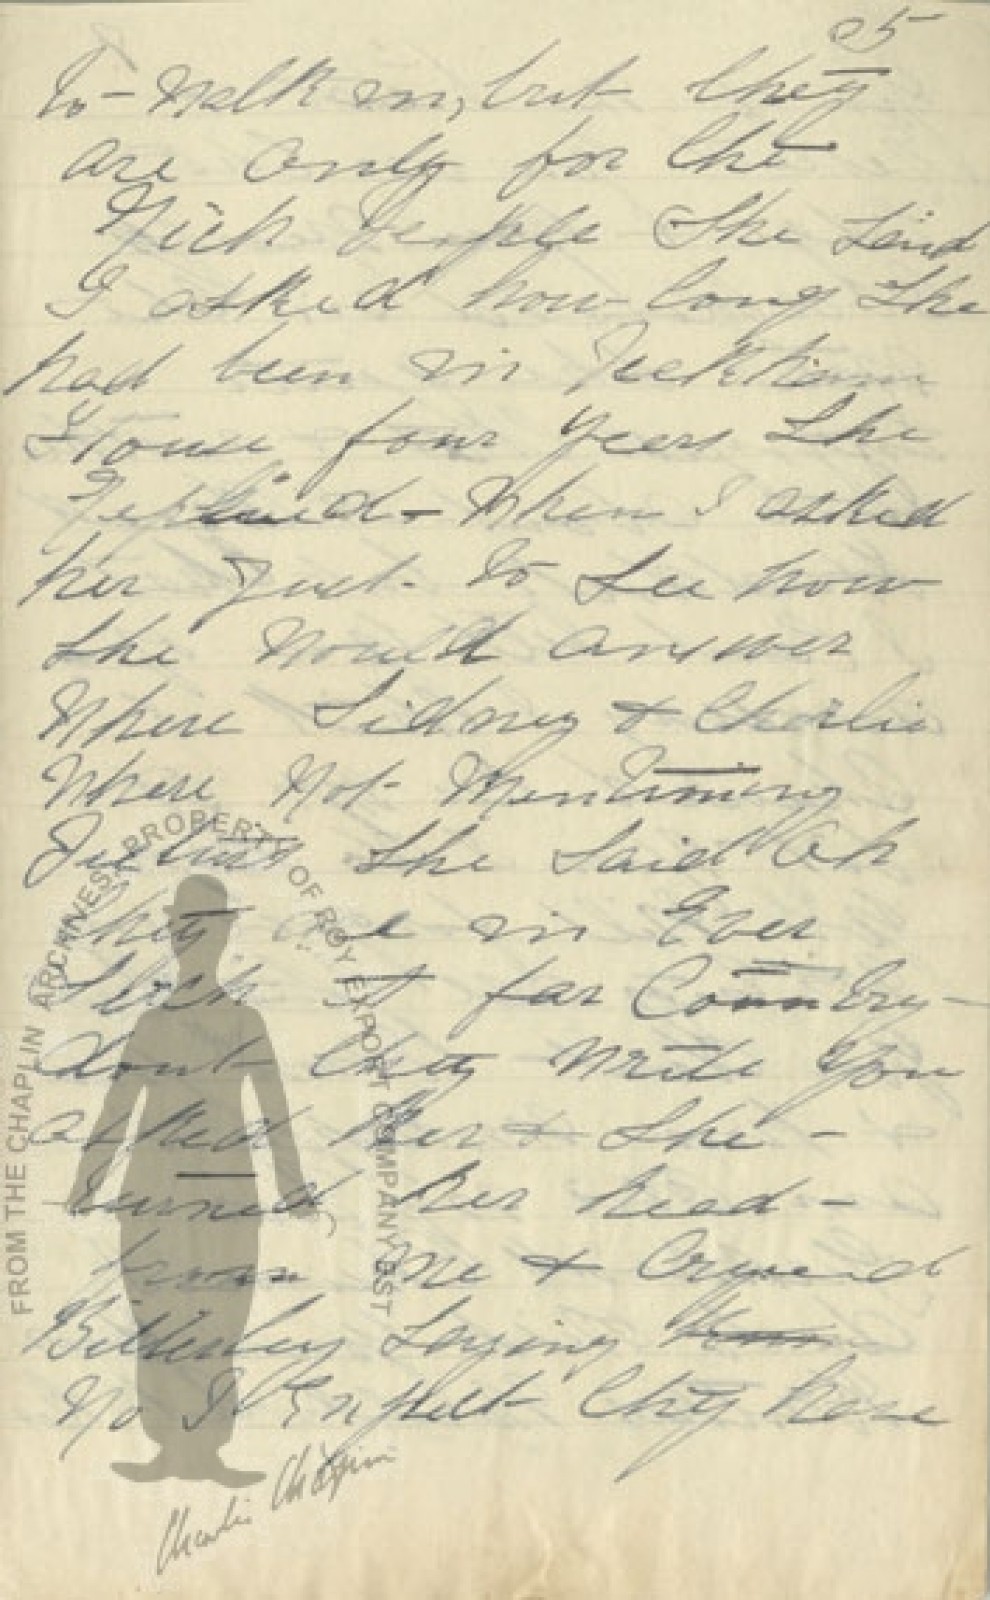 25
to walk in, but they
are only for the
Rich People She Said
I asked how long she
had been in Peckham
House four years she
Replied - When I asked
her Just to see how
she would answer
Where Sidney & Charlie
Where Not Mentioning
she said Oh
they are in Ever
far Country -
dont they Write You
asked her & she -
turned her head -
from me & Cryed
Bitterley Saying
No I Expect they have
FROM THE CHAPLIN ARCHIVES, PROPERTY OF ROY EXPORT COMPANY EST
Charlie Chaplin